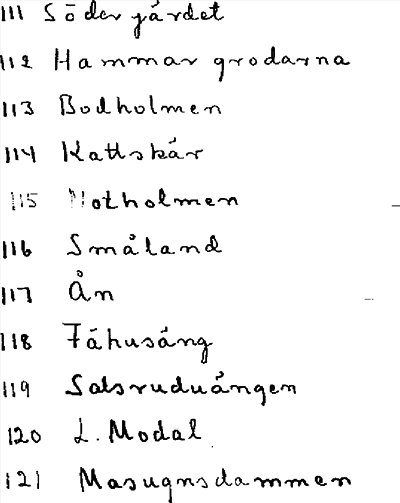 111 Södergärdet
112 Hammargrodarna
113 Bodholmen
114 Kattskär
115 Notholmen
116 Småland
117 Ån
118 Fähusäng
119 Salsruduängen
120 L. Modal
121 Masugnsdammen